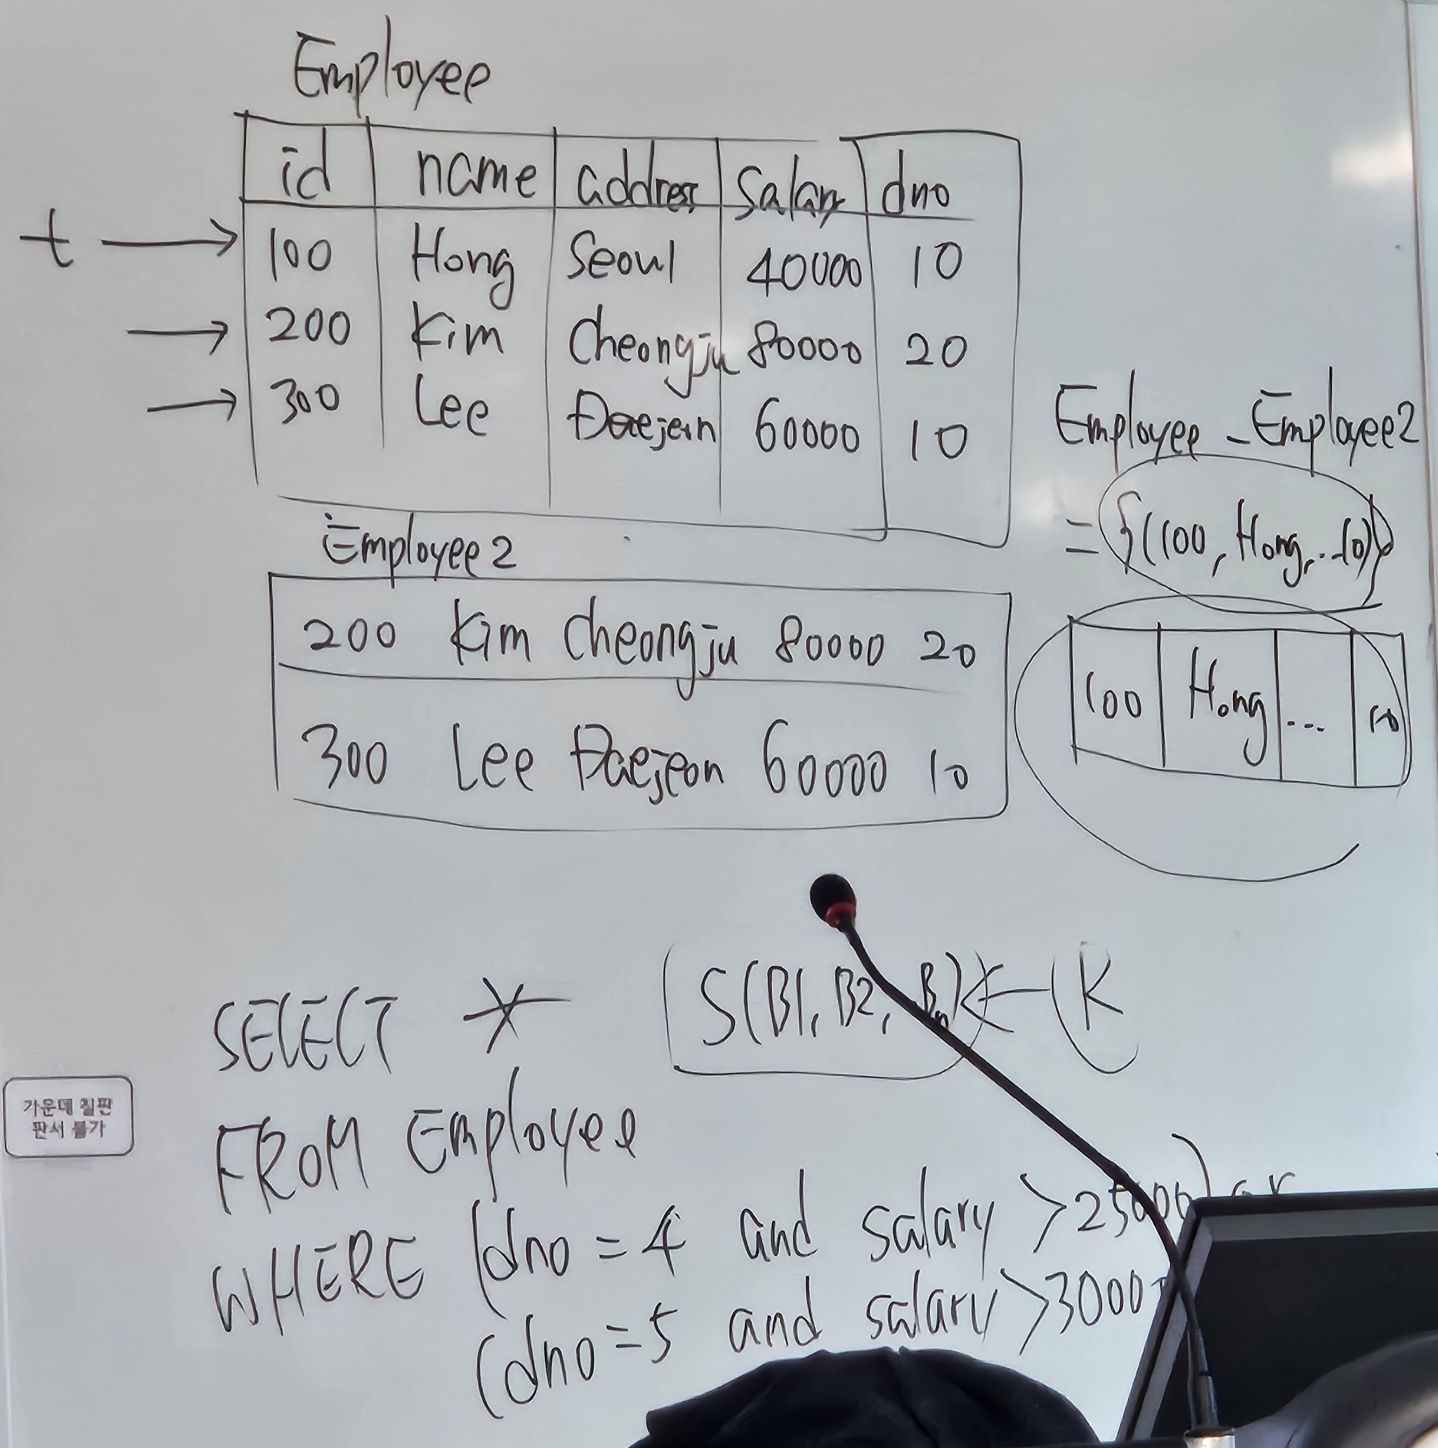 Employee
id name address salary dno
t → 100 Hong Seoul 40000 10
→ 200 Kim Cheongju 80000 20
→ 300 Lee Daejeon 60000 10
Employee2
200 Kim Cheongju 80000 20
300 Lee Daejeon 60000 10
Employee - Employee2
= {(100, Hong, .. 10)}
100 Hong ... 10
S(B1, B2, Bn) ← (R
SELECT *
FROM Employee
WHERE (dno = 4 and salary > 25000) or
(dno = 5 and salary > 3000
가운데 칠판
판서 불가